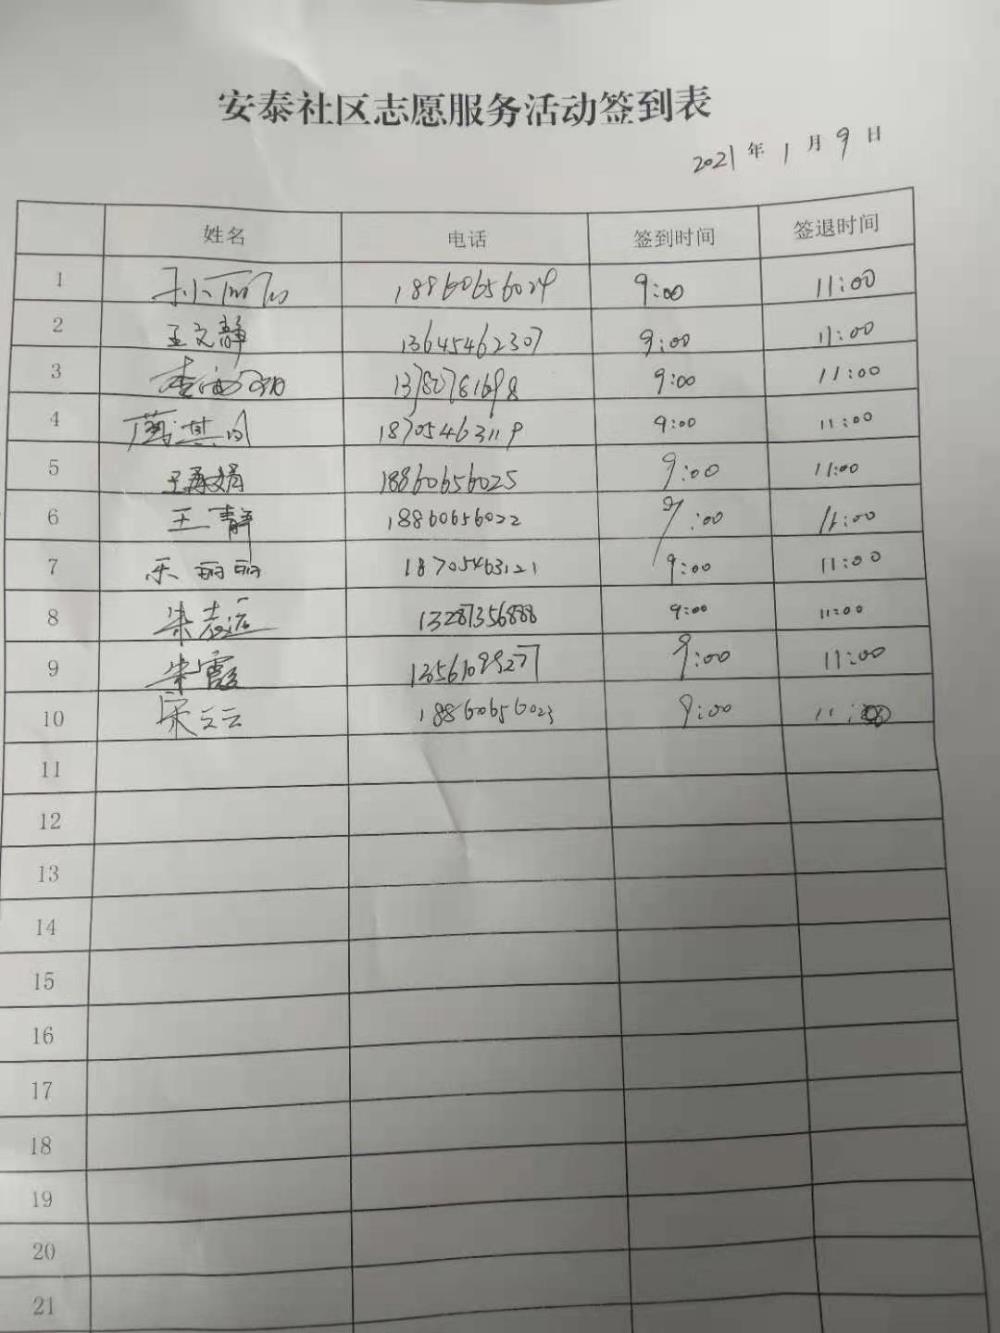 安泰社区志愿服务活动签到表
2021年1月9日
姓名 电话 签到时间 签退时间
1 孙丽丽 18860656024 9:00 11:00
2 王文静 13645462307 9:00 11:00
3 13780781698 9:00 11:00
4 18705463119 9:00 11:00
5 18860656025 9:00 11:00
6 王静 18860656022 9:00 11:00
7 乐丽丽 18705463121 9:00 11:00
8 朱志远 13287356888 9:00 11:00
9 朱霞 9:00 11:00
10 宋云云 18860656023 9:00 11:00
11
12
13
14
15
16
17
18
19
20
21